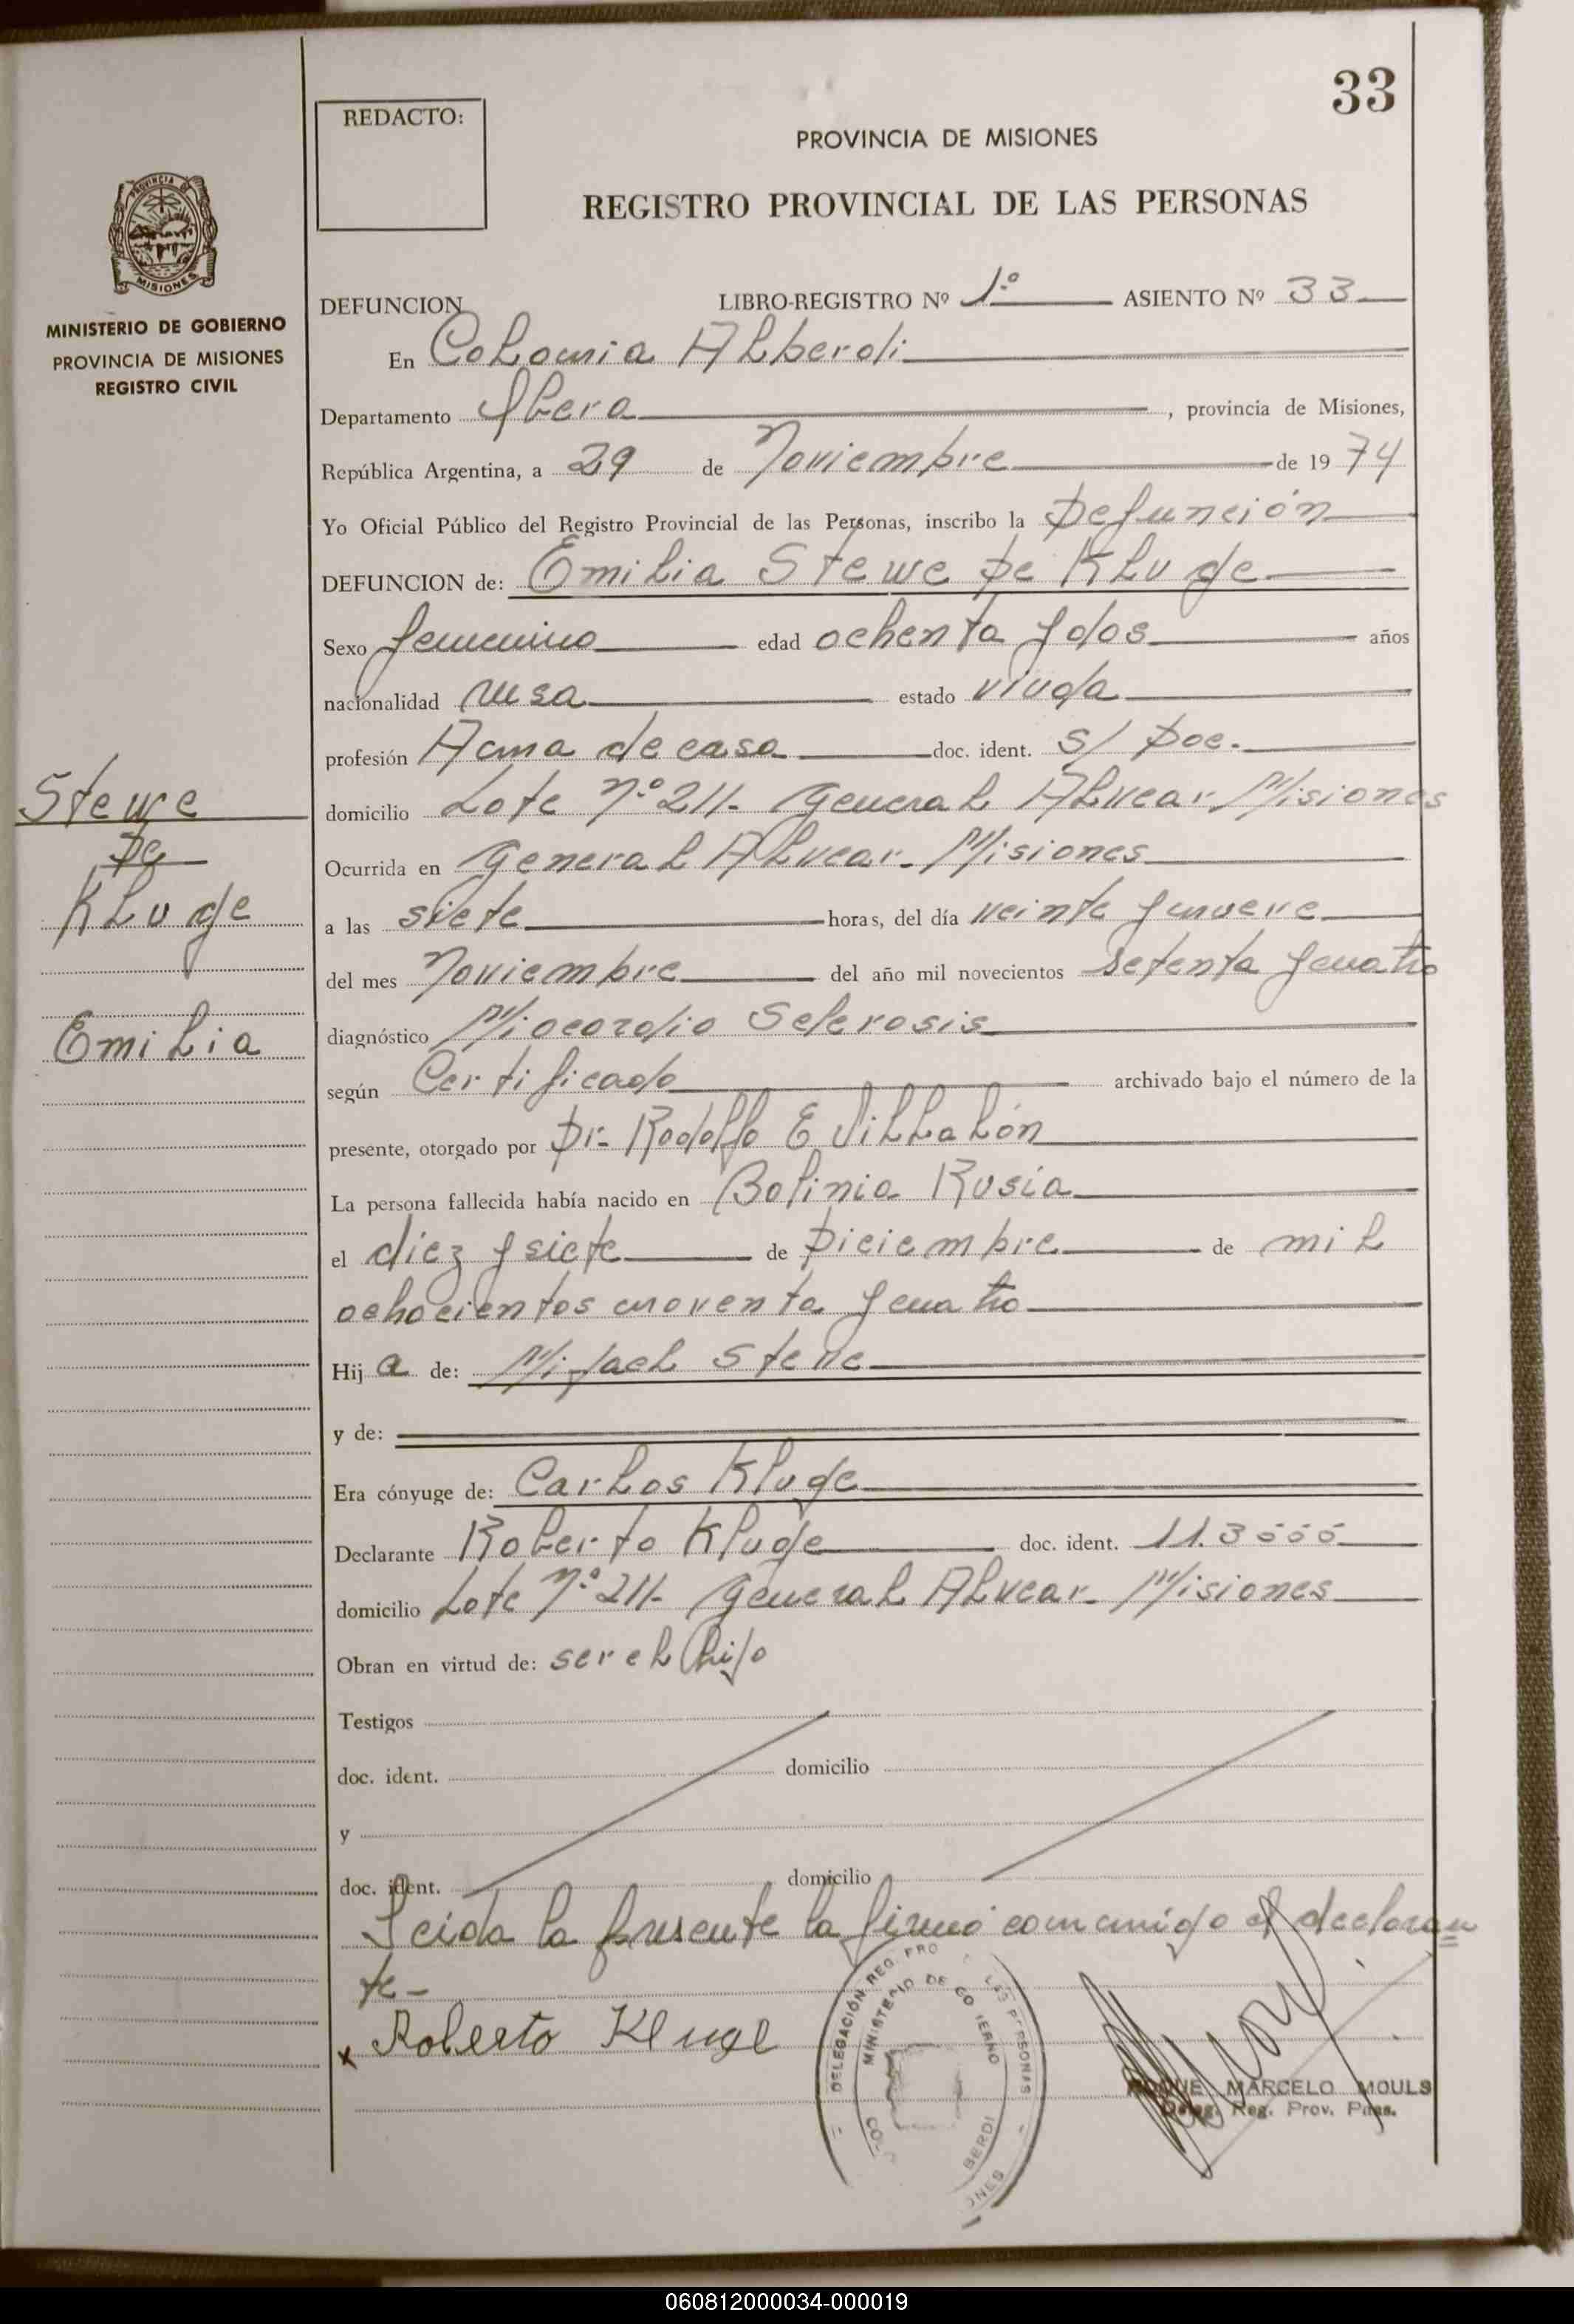 33
REDACTO:
PROVINCIA DE MISIONES
REGISTRO PROVINCIAL DE LAS PERSONAS
PROVINCIA DE
MISIONES
MINISTERIO DE GOBIERNO
PROVINCIA DE MISIONES
REGISTRO CIVIL
DEFUNCION LIBRO-REGISTRO Nº 1º ASIENTO Nº 33
En Colonia Alberdi
Departamento Obera, provincia de Misiones,
República Argentina, a 29 de Noviembre de 19 74
Yo Oficial Público del Registro Provincial de las Personas, inscribo la Defunción
DEFUNCION de: Emilia Stewe De Kluge
Sexo femenino edad ochenta y dos años
nacionalidad rusa estado viuda
profesión Ama de casa doc. ident. S/ Doc.
Stewe
De
Kluge
Emilia
domicilio Lote Nº 211- General Alvear- Misiones
Ocurrida en General Alvear- Misiones
a las siete horas, del día veinte y nueve
del mes Noviembre del año mil novecientos setenta y cuatro
diagnóstico Miocardio Sclerosis
según Certificado archivado bajo el número de la
presente, otorgado por Dr. Rodolfo E Villalón
La persona fallecida había nacido en Bolinia Rusia
el diez y siete de Diciembre de mil
ochocientos noventa y cuatro
Hij a de: Mijael Steve
y de:
Era cónyuge de: Carlos Kluge
Declarante Roberto Kluge doc. ident.
domicilio Lote Nº 211- General Alvear- Misiones
Obran en virtud de: ser el hijo
Testigos
doc. ident. domicilio
y
doc. ident. domicilio
Leida la presente la firmó conmigo el declaran
te-
x Roberto Kluge
DELEGACIÓN REG. PRO LAS PERSONAS
MINISTERIO DE GO IERNO
BERDI
ROQUE MARCELO MOULS
Deleg. Reg. Prov. Pnas.
060812000034-000019